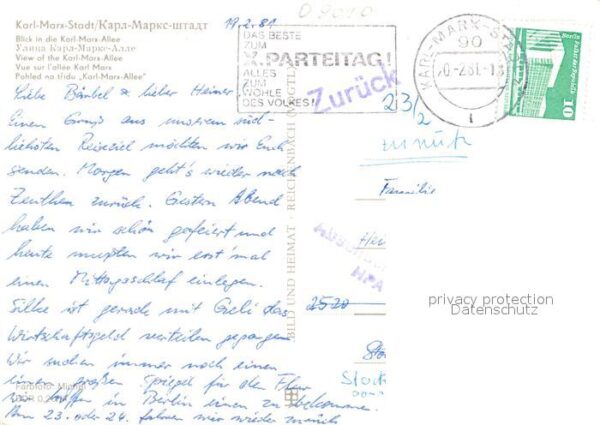 Karl-Marx-Stadt/Карл-Маркс-штадт
Blick in die Karl-Marx-Allee
Улица Карл-Маркс-Алле
View of the Karl-Marx-Allee
Vue sur l'allee Karl Marx
Pohled na třídu „Karl-Marx-Allee"
19.2.81
09010
DAS BESTE
ZUM
X. PARTEITAG!
ALLES
ZUM
WOHLE
DES VOLKES!
Zurück
KARL-MARX-STADT
90
20-2.81.-18
Berlin
10
23/2
zurück
Liebe Bärbel & lieber Heiner
Einen Gruß aus unserem süd-
lichsten Reiseziel möchten wir Euch
senden. Morgen geht's wieder nach
Zeuthen zurück. Gestern Abend
haben wir schön gefeiert und
heute mußten wir erst mal
einen Mittagsschlaf einlegen.
Silke ist gerade mit das
Wirtschaftsgeld verteilen gegangen
Wir suchen immer noch einen
großen Spiegel für den Flur
hoffen in Berlin einen zu bekommen.
Am 23. oder 24. fahren wir wieder zurück
Familie
Hei
2520
Sto
BILD UND HEIMAT · REICHENBACH (VOGTL
HPA
Farbfoto:
DDR 0,20
privacy protection
Datenschutz